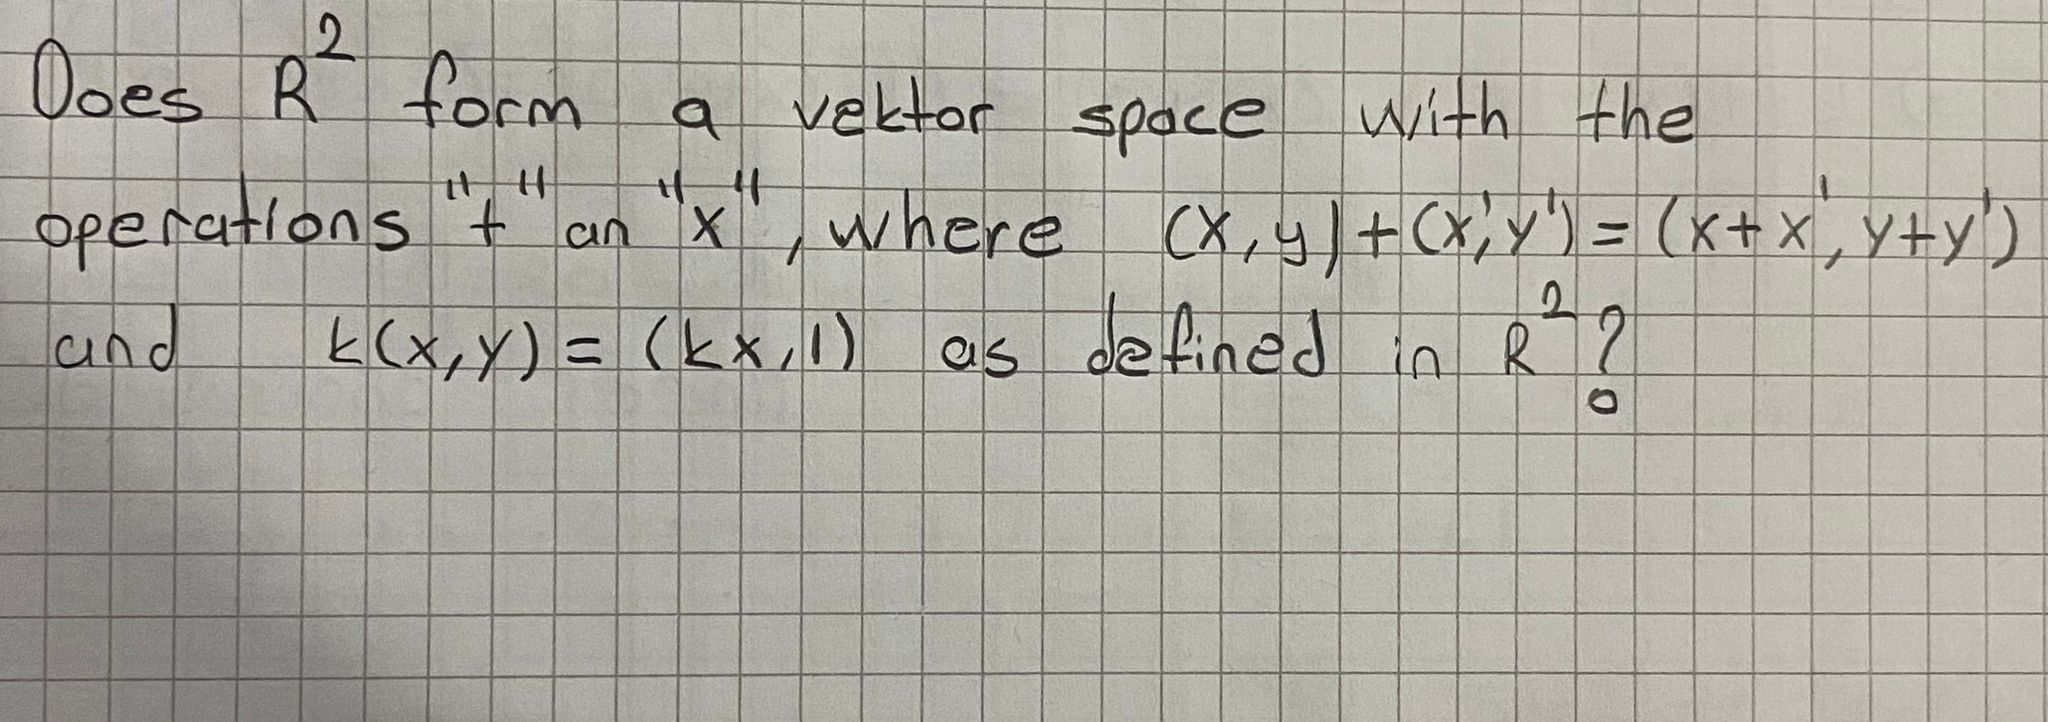 Does R² form a vektor space with the
operations "+" an "x", where (x,y)+(x',y')=(x+x', y+y')
and k(x,y)=(kx,1) as defined in R²?